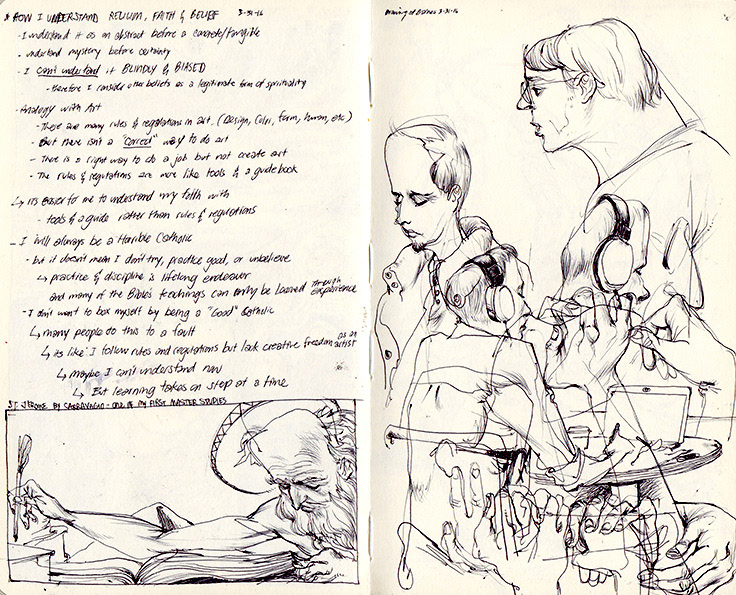 * HOW I UNDERSTAND RELIGION, FAITH & BELIEF 3-31-16
- I understand it as an abstract before a concrete/tangible
- understand mystery before certainty
- I can't understand it BLINDLY & BIASED
- therefore I consider other beliefs as a legitimate form of spirituality
- Analogy with Art
- There are many rules & regulations in art. (Design, Color, form, human, etc)
- But there isn't a "correct" way to do art
- There is a right way to do a job but not create art
- The rules & regulations are more like tools & a guidebook
↳ its easier for me to understand my faith with
- tools & a guide rather than rules & regulations
- I will always be a Horrible Catholic
- but it doesn't mean I don't try, practice good, or unbelieve
↳ practice & discipline is lifelong endeavor
and many of the Bible's teachings can only be learned through experience
- I don't want to box myself by being a "Good" Catholic
↳ many people do this to a fault
↳ its like I follow rules and regulations but lack creative freedom as an artist
↳ maybe I can't understand now
↳ But learning takes on step at a time
ST. JEROME BY CARRAVAGIO - ONE OF MY FIRST MASTER STUDIES
Drawing at Barnes 3-31-16